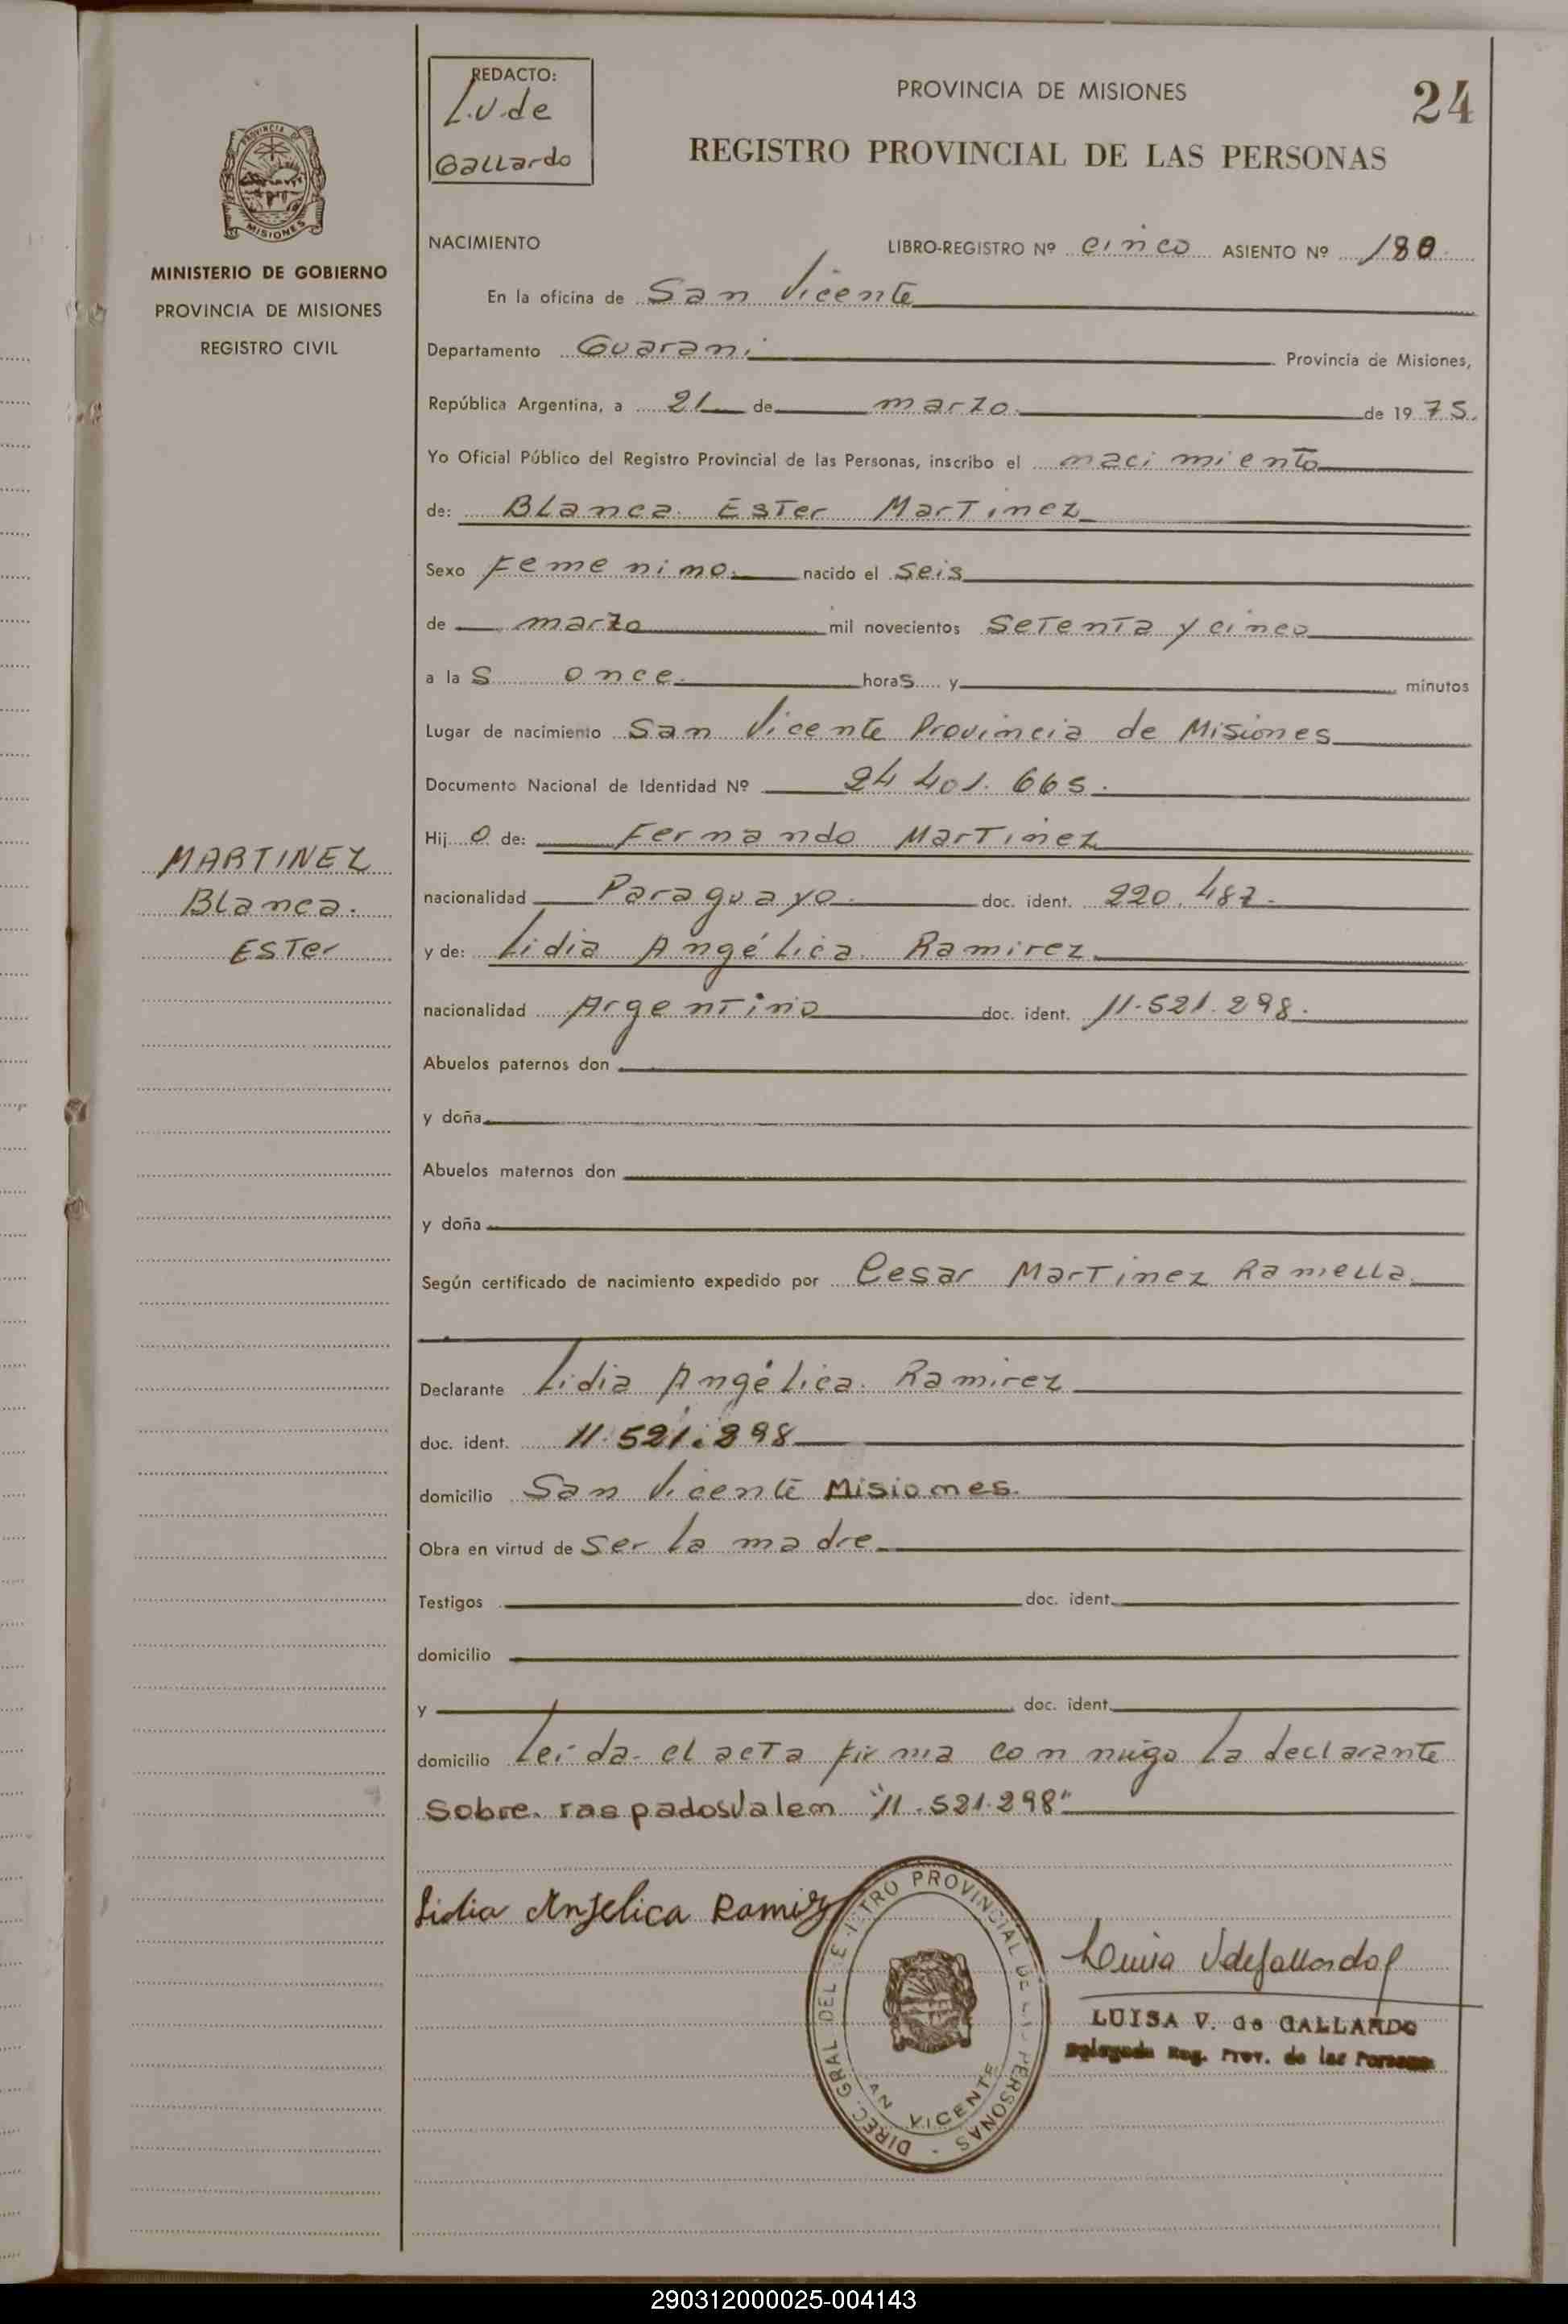 REDACTO:
L.V. de
Gallardo
PROVINCIA DE MISIONES
24
REGISTRO PROVINCIAL DE LAS PERSONAS
PROVINCIA DE MISIONES
MINISTERIO DE GOBIERNO
PROVINCIA DE MISIONES
REGISTRO CIVIL
NACIMIENTO LIBRO-REGISTRO Nº cinco ASIENTO Nº 180.
En la oficina de San Vicente
Departamento Guarani Provincia de Misiones,
República Argentina, a 21 de marzo de 1975.
Yo Oficial Público del Registro Provincial de las Personas, inscribo el nacimiento
de: Blanca Ester Martinez
Sexo Femenino. nacido el seis
de marzo mil novecientos setenta y cinco
a las once horas y minutos
Lugar de nacimiento San Vicente Provincia de Misiones
Documento Nacional de Identidad Nº 24 401.665.
Hijo de: Fernando Martinez
nacionalidad Paraguayo doc. ident. 220.487.
y de: Lidia Angélica Ramirez
nacionalidad Argentino doc. ident. 11.521.298.
Abuelos paternos don
y doña
Abuelos maternos don
y doña
Según certificado de nacimiento expedido por Cesar Martinez Ramella.
Declarante Lidia Angélica Ramirez
doc. ident. 11.521.298
domicilio San Vicente Misiones.
Obra en virtud de ser la madre.
Testigos doc. ident.
domicilio
y doc. ident.
domicilio Leida el acta firma con migo la declarante
Sobre raspados valen "11.521.298"
MARTINEZ
Blanca
Ester
Lidia Anjelica Ramirez
DIREC. GRAL DEL REGISTRO PROVINCIAL DE LAS PERSONAS - SAN VICENTE
Luisa V de Gallardo
LUISA V. de GALLARDO
Delegada Reg. Prov. de las Personas
290312000025-004143